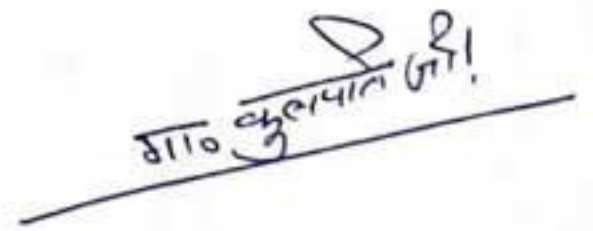 मा० कुलपति जी!